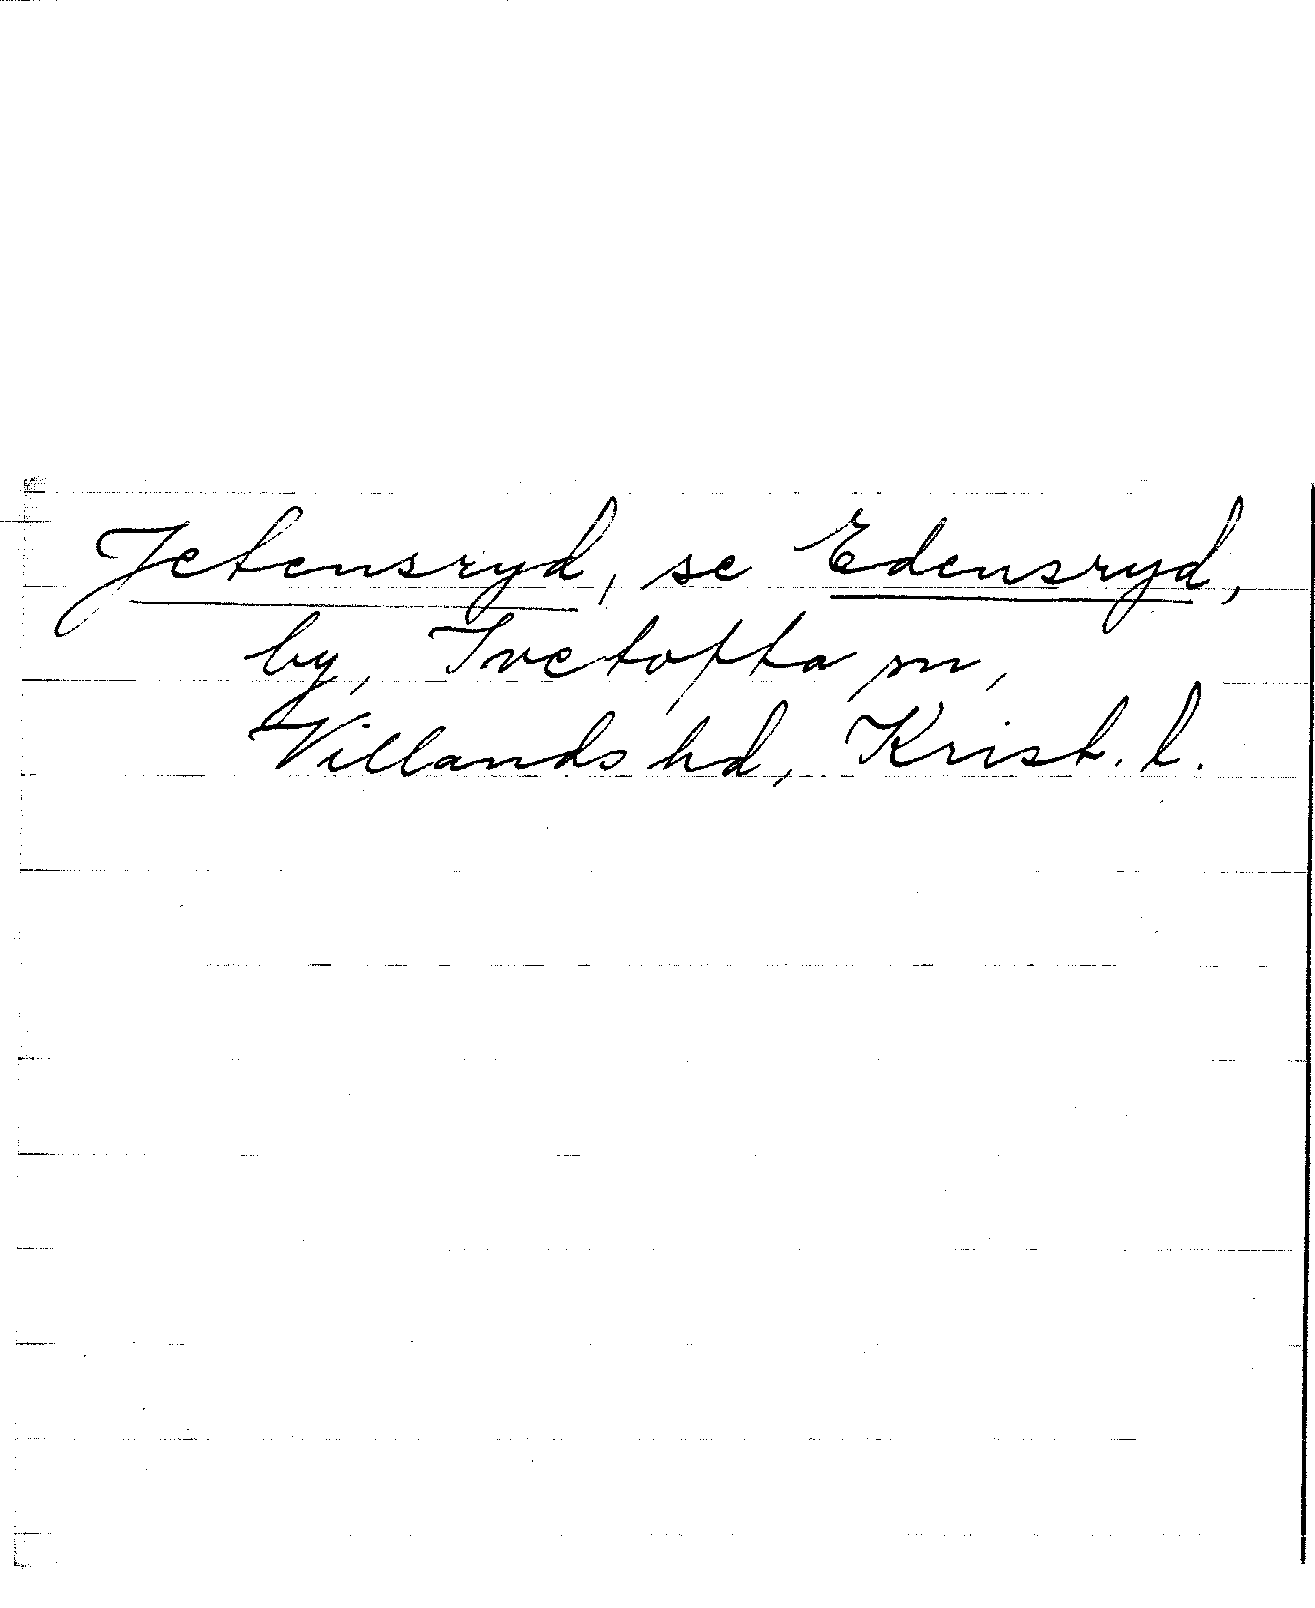 Jetensryd, se Edensryd,
by, Ivetofta sn,
Villands hd, Krist. l.